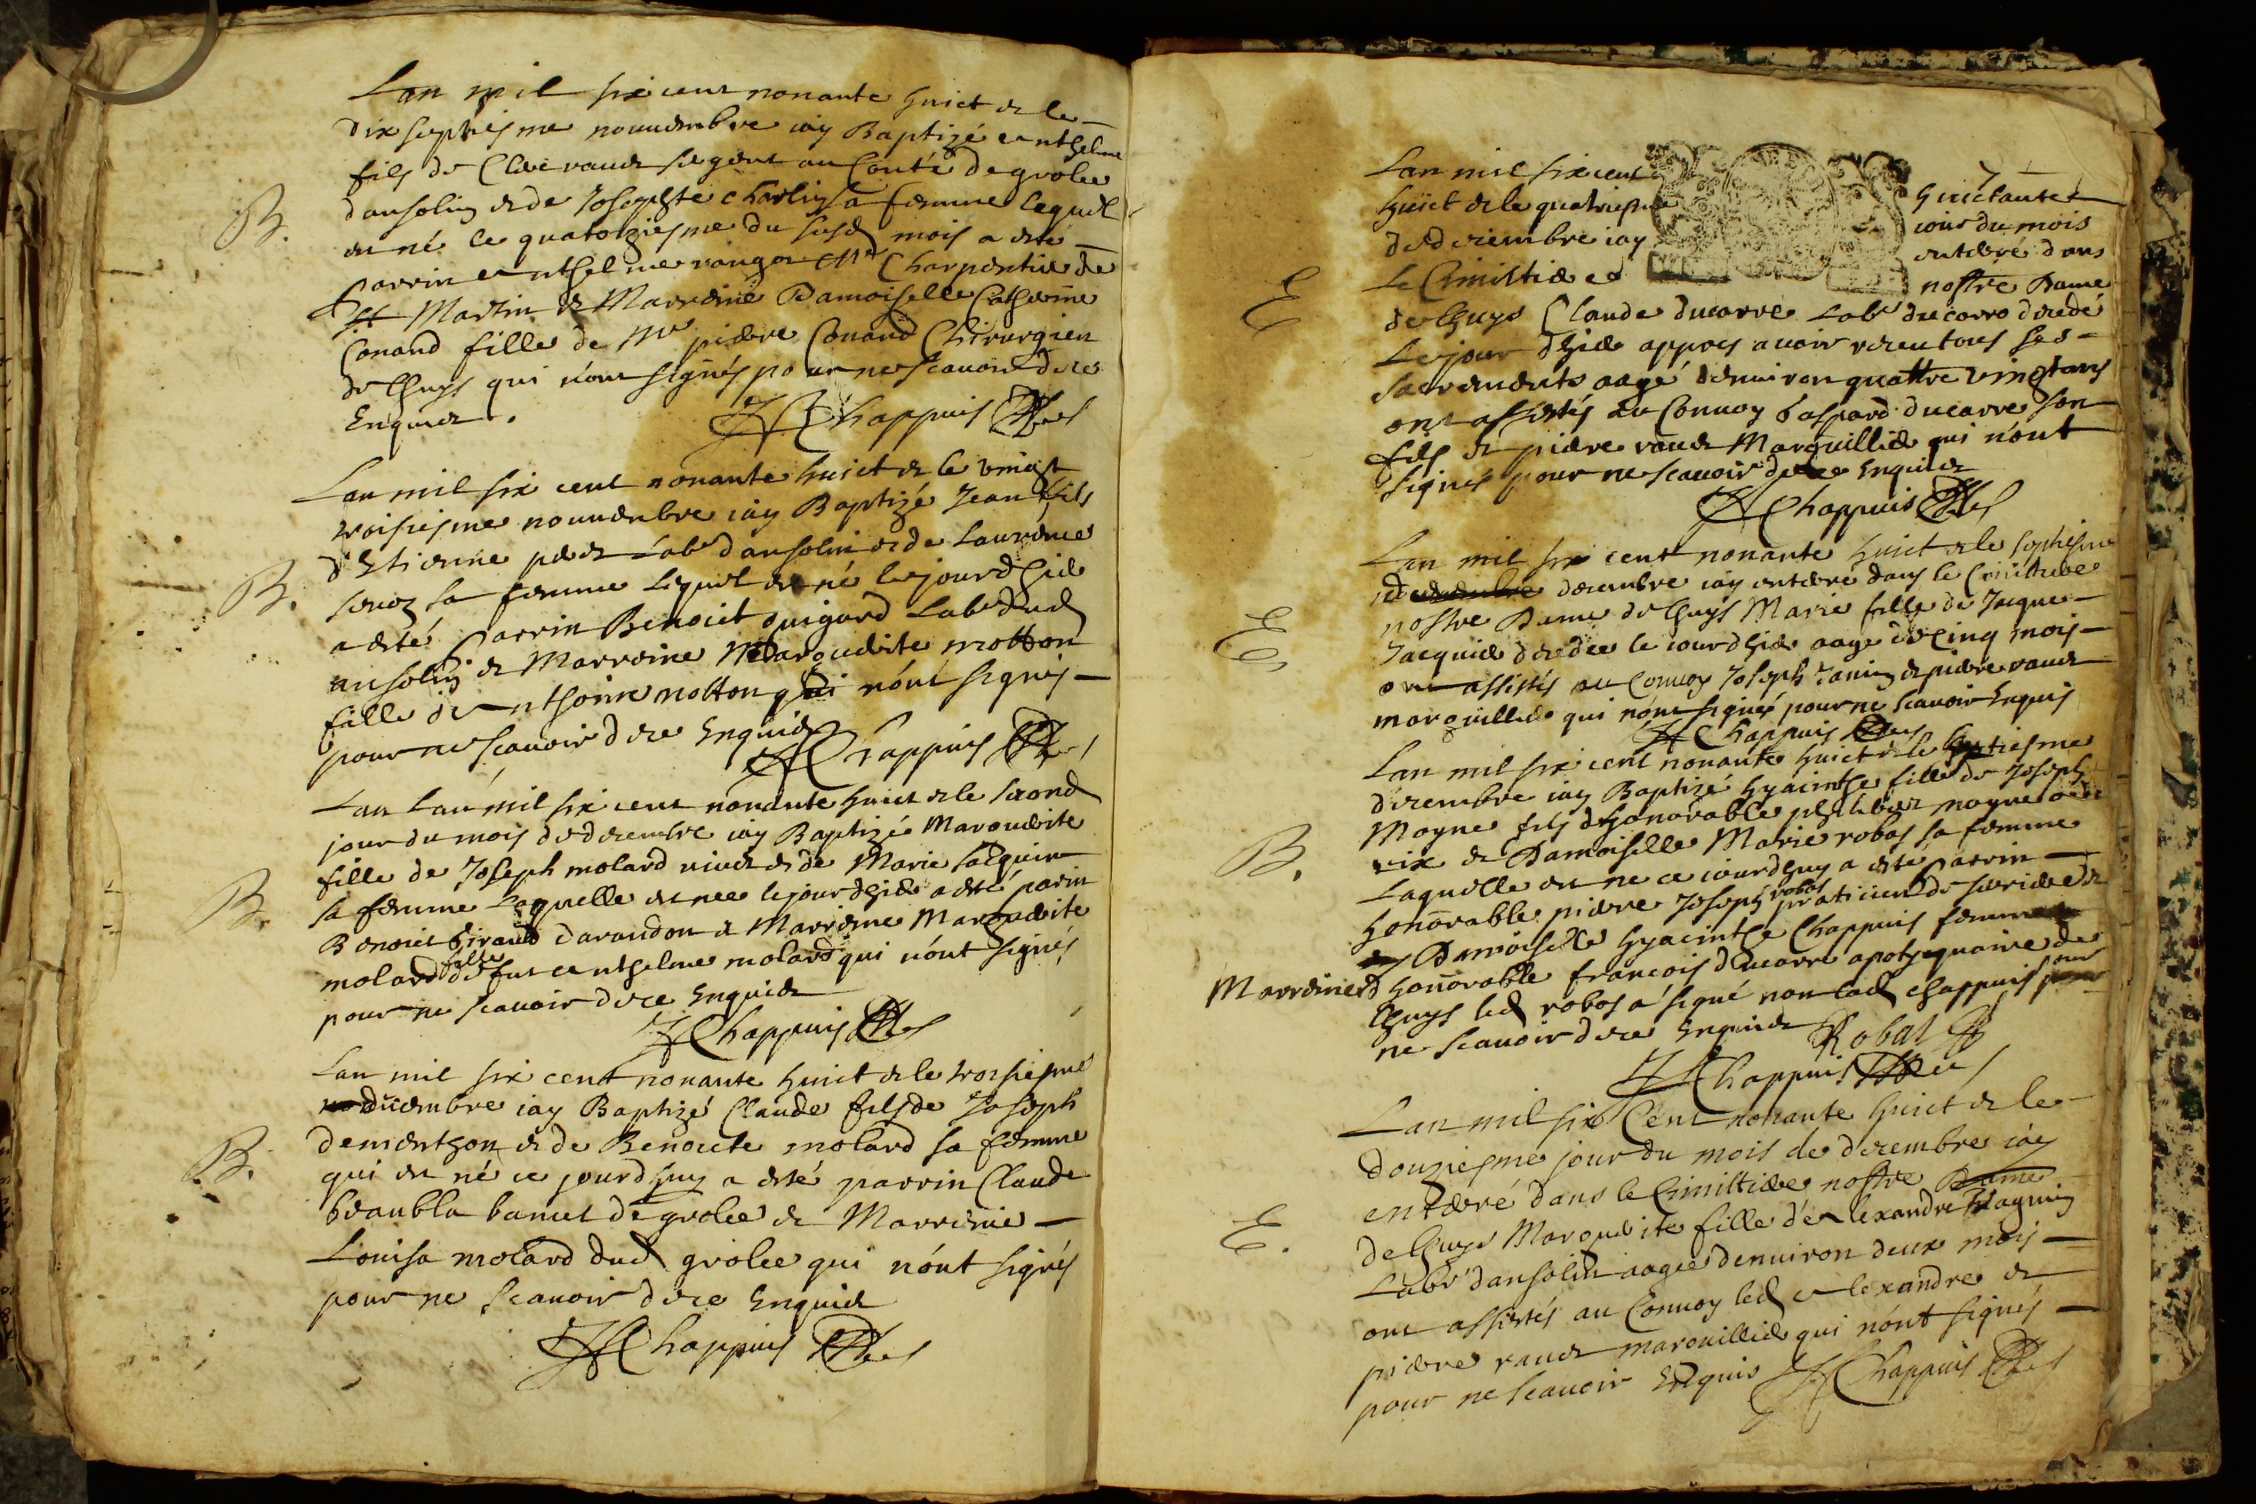 Lan mil six cent nonante huict et le
dix septiesme nouuembre iay Baptizé Anthelme
fils de Claude vauet sergent au Conté de grolee
dansolin et de Josephte Charlin sa femme lequel
est né le quatorziesme du susd mois a esté
B.
parrin Anthelme Md Charpentier de
St Martin et Marreine Damoiselle Catherine
Conand fille de Mre pierre Conand Chirurgien
de Lhuys qui nont signés pour ne scauoir dece
Enquiet.
Chappuis
Lan mil six cent nonante huict et le vingt
troisiesme nouuembre iay Baptizé Jean fils
d'Estienne labr dansolin et de Laurence
B.
sa femme lequel est né le jour dhier
a esté Parrin Benoict quigard Labr dud
ansolin et Marreine Marguerite motton
fille d'Anthoine motton qui nónt signés
pour ne scauoir dece Enquiet
Chappuis
Lan Lan mil six cent nonante huict et le second
jour du mois de decembre iay Baptizée Marguerite
fille de Joseph molard et de Marie Jacquin
B.
sa femme Laquelle est nee le jour dhier a esté parin
Benoict Giraud darandon et Marreine Marguerite
molard fille de fut Anthelme molard qui nónt signés
pour ne scauoir dece Enquiet
Chappuis
Lan mil six cent nonante huict et le troisiesme
decembre iay Baptizé Claude fils de Joseph
dementhon et de Benoicte molard sa femme
B.
qui est né ce jourdhuy a esté parrin Claude
de grolee et Marreine
Louisa molard dud grolee qui nónt signés
pour ne scauoir dece Enquiet
Chappuis
Lan mil six cent
huictante
huict et le quatriesme
iour du mois
de decembre iay
enterré dans
E
Le Cimistiere
nostre Dame
de Lhuys Claude ducarre Labr ducarro decedé
Le jour dhier appres auoir receu tous ses
sacrements aagé denuiron quattre vingt ans
ont assistés au Conuoy Gaspard ducarre son
fils et pierre vauet Marguillier qui nónt
signés pour ne scauoir dece Enquiet
Chappuis
Lan mil six cent nonante huict et le septiesme
decembre iay enterré dans le Cimistiere
E
nostre Dame de Lhuys Marie fille de Jacque
Jacquier decedée le iour dhier aagé de Cinq mois
ont assistés au Conuoy Joseph Janin et pierre vauet
marguillier qui nónt signés pour ne scauoir Enquis
Chappuis
Lan mil six cent nonante huict et le septiesme
decembre iay Baptizé hyacinthe fille de Joseph
Mayne fils dhonorable philibert mayne de
B.
vix et Damoiselle Marie robas sa femme
Laquelle est ne ce iourdhuy a esté parrin
honorable pierre Joseph robas praticien de
Damoiselle hyacinthe Chappuis femme
Marreine
d honnorable francois ducarre apothequaire de
Lhuys led robas a signé non lad chappuis pour
ne scauoir dece Enquiet Robas
Chappuis
Lan mil six Cent nonante huict et le
douziesme jour du mois de decembre iay
enterré dans le Cimistiere nostre Dame
E.
de Lhuys Marguerite fille d'Alexandre
Labr dansolin aagée denuiron deux mois
ont assistés au Conuoy led Alexandre et
pierre vauet marguillier qui nónt signés
pour ne scauoir Enquis Chappuis